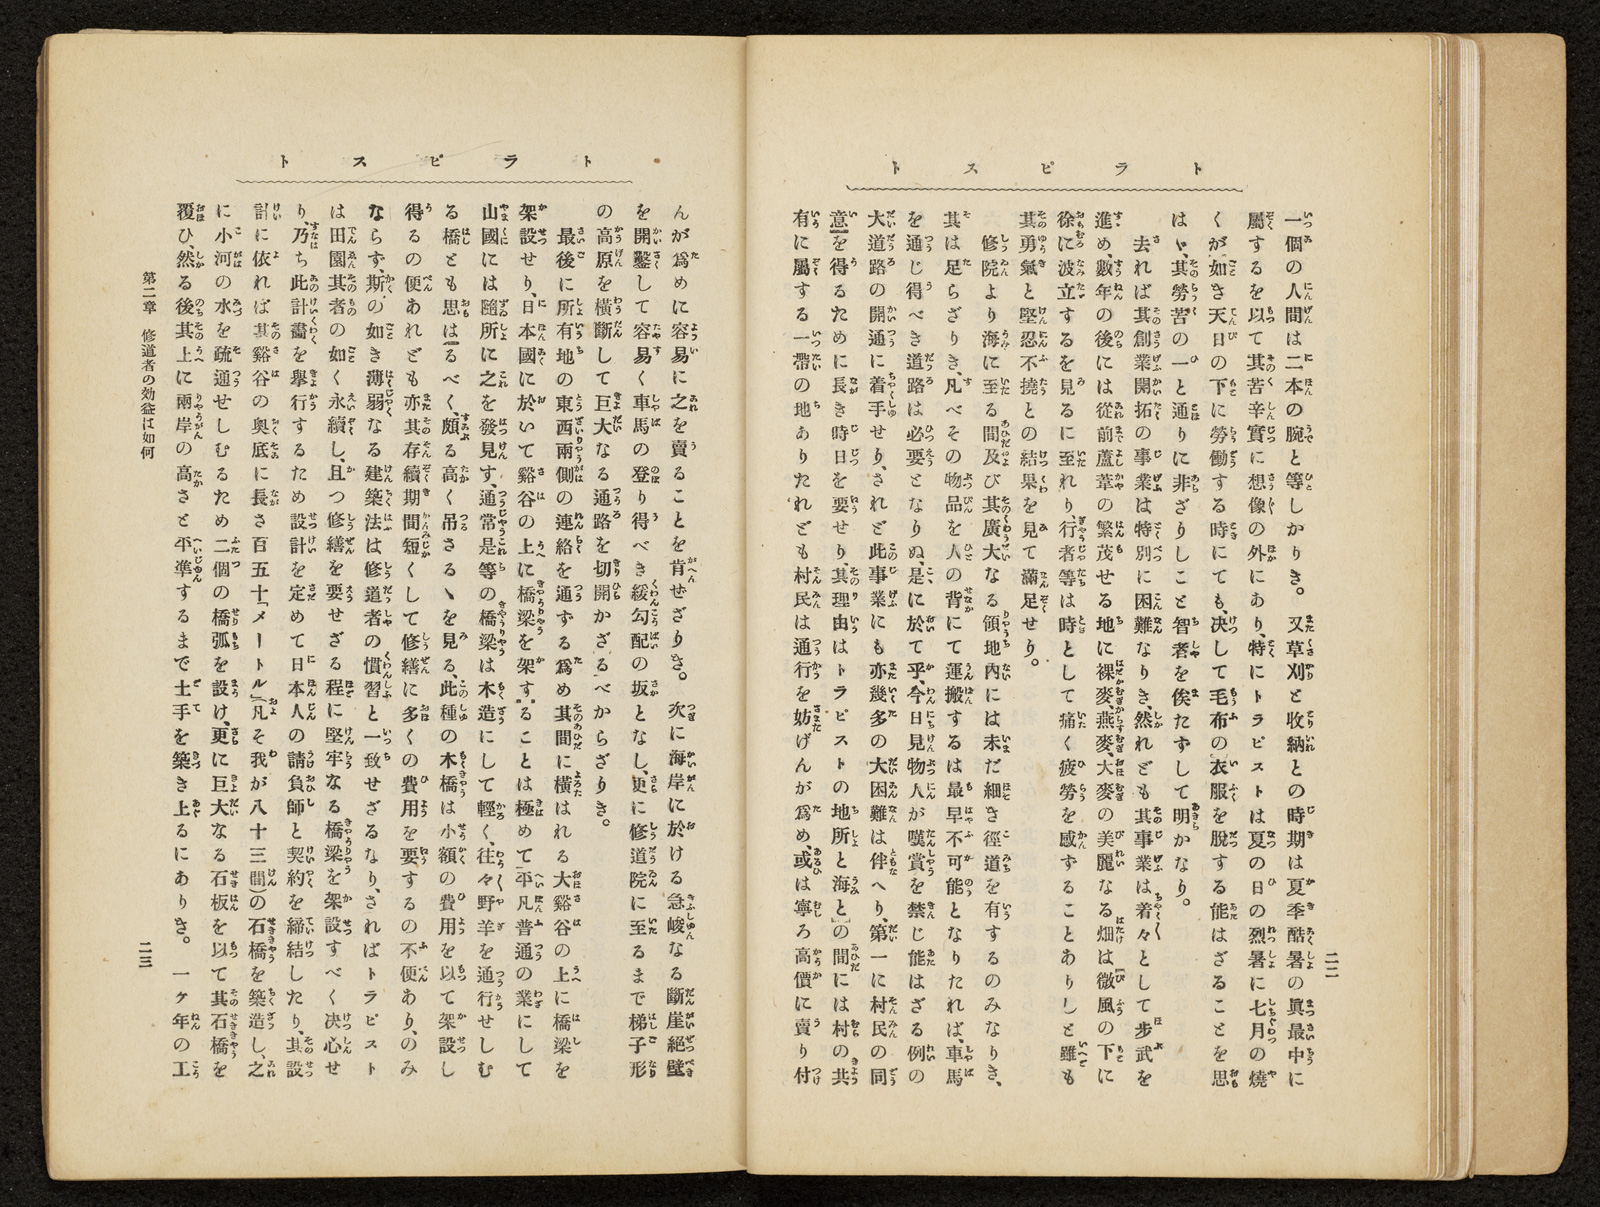 トラピスト
二二
一個の人間は二本の腕と等しかりき。又草刈と收納との時期は夏季酷暑の眞最中に
屬するを以て其苦辛實に想像の外にあり、特にトラピストは夏の日の烈暑に七月の燒
くが如き天日の下に勞働する時にても、决して毛布の衣服を脫する能はざることを思
はゞ、其勞苦の一と通りに非ざりしこと智者を俟たずして明かなり。
去れば其創業開拓の事業は特別に困難なりき、然れども其事業は着々として步武を
進め、數年の後には從前蘆葦の繁茂せる地に裸麥、燕麥、大麥の美麗なる畑は微風の下に
徐に波立するを見るに至れり、行者等は時として痛く疲勞を感ずることありしと雖も
其勇氣と堅忍不撓との結果を見て滿足せり。
修院より海に至る間及び其廣大なる領地內には未だ細き徑道を有するのみなりき、
其は足らざりき、凡べその物品を人の背にて運搬するは最早不可能となりたれば、車馬
を通じ得べき道路は必要となりぬ、是に於て乎、今日見物人が嘆賞を禁じ能はざる例の
大道路の開通に着手せり、されど此事業にも亦幾多の大困難は伴へり、第一に村民の同
意を得るために長き時日を要せり、其理由はトラピストの地所と海との間には村の共
有に屬する一帶の地ありたれども村民は通行を妨げんが爲め、或は寧ろ高價に賣り付
トラピスト
んが爲めに容易に之を賣ることを肯せざりき。次に海岸に於ける急峻なる斷崖絕壁
を開鑿して容易く車馬の登り得べき緩勾配の坂となし、更に修道院に至るまで梯子形
の高原を橫斷して巨大なる通路を切開かざるべからざりき。
最後に所有地の東西兩側の連絡を通ずる爲め其間に橫はれる大谿谷の上に橋梁を
架設せり、日本國に於いて谿谷の上に橋梁を架することは極めて平凡普通の業にして
山國には隨所に之を發見す、通常是等の橋梁は木造にして輕く、往々野羊を通行せしむ
る橋とも思はるべく、頗る高く吊さるゝを見る、此種の木橋は小額の費用を以て架設し
得るの便あれども亦其存續期間短くして修繕に多くの費用を要するの不便あり、のみ
ならず、斯の如き薄弱なる建築法は修道者の慣習と一致せざるなり、さればトラピスト
は田園其者の如く永續し、且つ修繕を要せざる程に堅牢なる橋梁を架設すべく决心せ
り、乃ち此計畫を擧行するため設計を定めて日本人の請負師と契約を締結したり、其設
計に依れば其谿谷の奧底に長さ百五十「メートル」(凡そ我が八十三間)の石橋を築造し、之
に小河の水を疏通せしむるため二個の橋弧を設け、更に巨大なる石板を以て其石橋を
覆ひ、然る後其上に兩岸の高さと平準するまで土手を築き上るにありき。一ケ年の工
第二章 修道者の効益は如何
二三